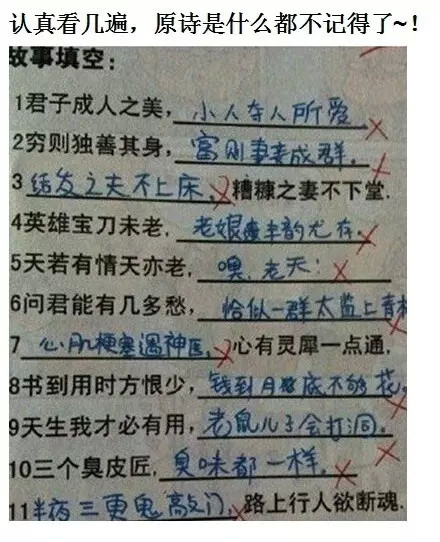 认真看几遍，原诗是什么都不记得了~！
故事填空：
1君子成人之美，小人夺人所爱
2穷则独善其身，富则妻妾成群。
3结发之夫不上床，糟糠之妻不下堂.
4英雄宝刀未老，老娘丰韵尤存。
5天若有情天亦老，噢，老天！
6问君能有几多愁，恰似一群太监上青
7心肌梗塞遇神医，心有灵犀一点通，
8书到用时方恨少，钱到月底不够花。
9天生我才必有用，老鼠儿子会打洞。
10三个臭皮匠，臭味都一样，
11半夜三更鬼敲门，路上行人欲断魂.